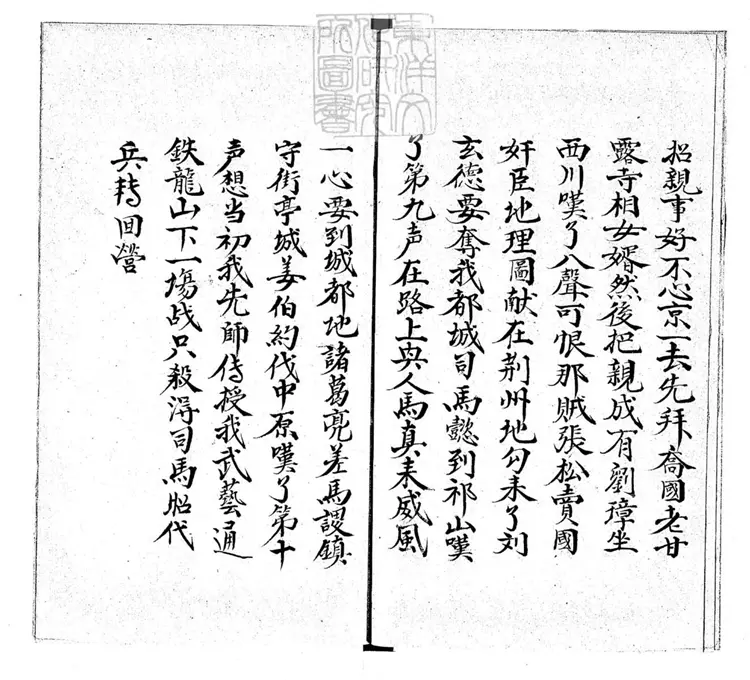 東洋文
化研究
所圖書
招親事好不心京一去先拜喬國老甘
露寺相女婿然後把親成有劉璋坐
西川嘆了八聲可恨那賊張松賣國
奸臣地理圖献在荆州地勾来了刘
玄德要奪我都城司馬懿到祁山嘆
了第九声在路上與人馬真来威風
一心要到城都地諸葛亮差馬謖鎮
守街亭城姜伯約伐中原嘆了第十
声想当初我先師傳授我武藝通
鉄龍山下一塲战只殺淂司馬昭代
兵轉回營